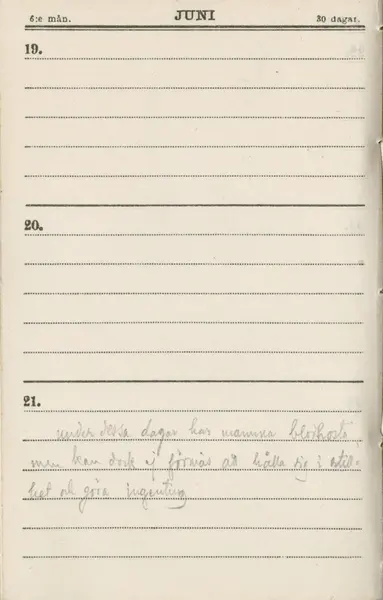 6:e mån. JUNI 30 dagar.
19.
20.
21.
under dessa dagar har mamma blodhosta
men kan dock ej förmås att hålla sig i stil-
het och göra ingenting